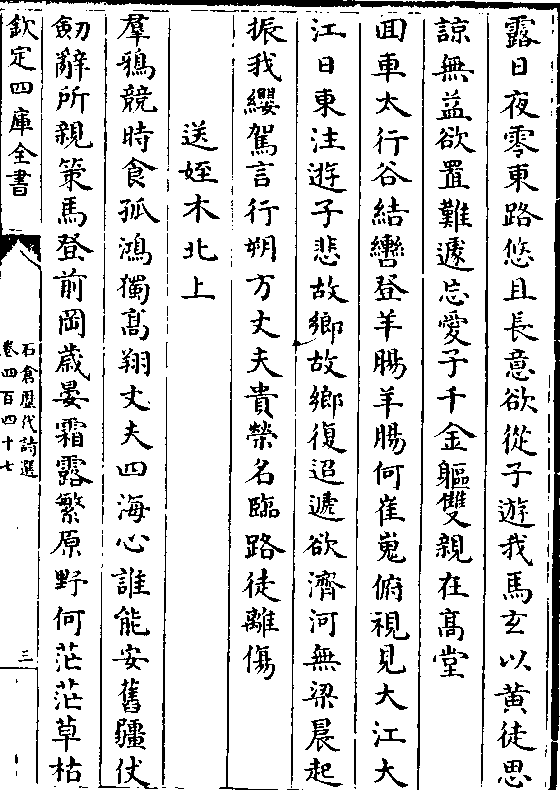 露日夜零東路悠且長意欲從子遊我馬玄以黄徒思
諒無益欲置難遽忘愛子千金軀雙親在髙堂
回車太行谷結轡登羊腸羊腸何崔嵬俯視見大江大
江日東注遊子悲故鄉故鄉復迢遞欲濟河無梁晨起
振我纓駕言行朔方丈夫貴榮名臨路徒離傷
送姪木北上
羣鴉競時食孤鴻獨髙翔丈夫四海心誰能安舊疆仗
劒辭所親策馬登前岡歳晏霜露繁原野何茫茫草枯
欽定四庫全書
石倉歴代詩選
卷四百四十七
三